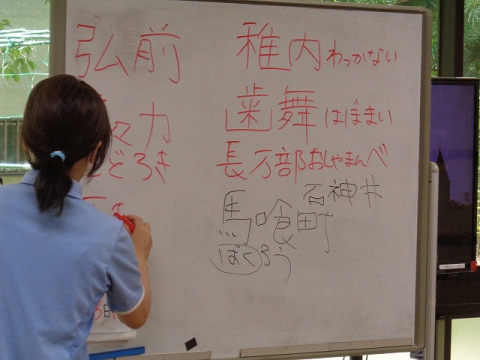 弘前 稚内 わっかない
々力 歯舞 はぼまい
どろき 長万部 おしゃまんべ
石神井
馬喰町
ばくろう